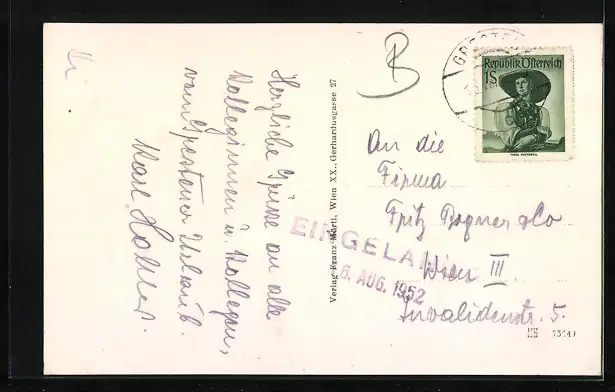 Herzliche Grüsse an alle
Kolleginnen u. Kollegen,
vom Grestener Urlaub.
Karl
Verlag Franz Mörtl, Wien XX., Gerhardusgasse 27
GRESTEN
Republik Österreich
1S
An die
Firma
Fritz Bogner & Co
Wien III
Invalidenstr. 5.
EINGELA
6. AUG. 1952